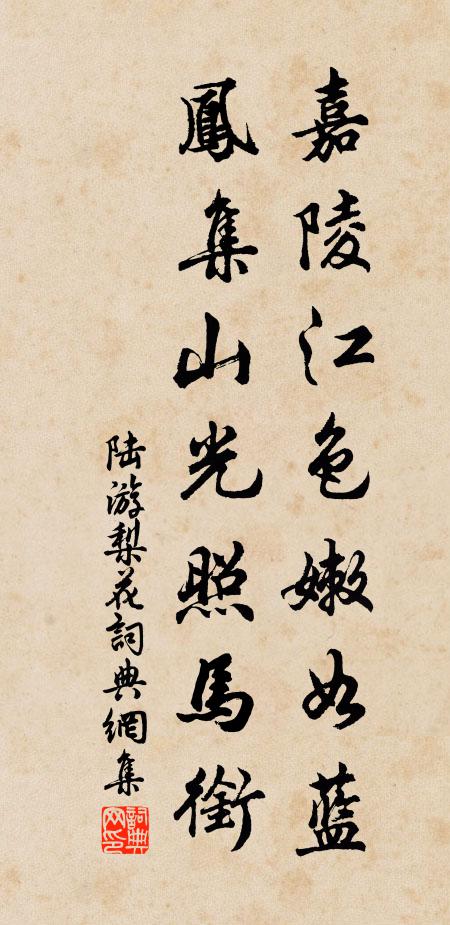 嘉陵江色嫩如藍
鳳集山光照馬銜
陆游梨花詞典網集
詞典
网印